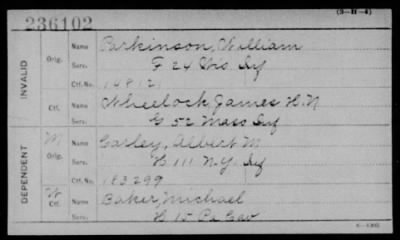 (3-H-4)
236102
INVALID
Orig. Name Parkinson, William
Serv. F 24 Wis Inf
Ctf. No. 148121
Ctf. Name Wheelock, James H. N
Serv. G 52 Mass Inf
DEPENDENT
M Orig. Name Earley, Albert M
Serv. H 111 N.Y. Inf
Ctf. No. 183299
W Ctf. Name Baker, Michael
Serv. H 15 Pa Cav